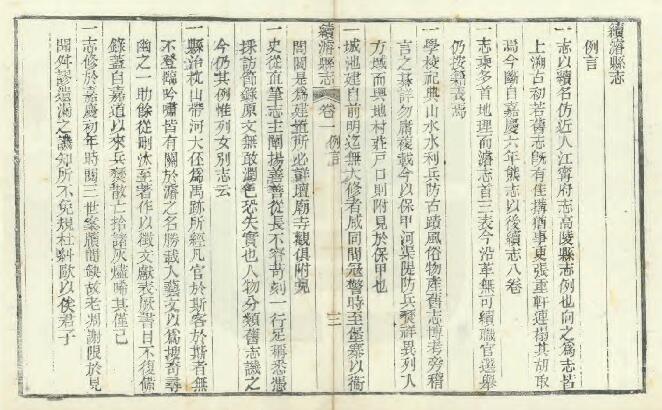 續濬縣志
例言
一志以續名仿近人江寧府志高陵縣志例也向之為志皆
上溯古初若舊志旣有佳搆猶事更張重軒連搨其胡取
焉今斷自嘉慶六年熊志以後續志八卷
一志乘多首地理而濬志首三表今沿革無可續職官選舉
仍按續表焉
一學校祀典山水水利兵防古蹟風俗物產舊志博考旁稽
言之綦詳勿庸複載今以保甲河渠隄防兵燹祥異列入
方域而輿地村莊戶口則附見於保甲也
一城池建自前明迄無大修者咸同間寇警時至堡寨以衞
續濬縣志
卷一
例言
三
閭閻是為建造所必詳壇廟寺觀俱附見
一史從直筆志主闡揚善善從長不容苛刻一行足稱悉憑
採訪節錄原文無敢潤色恐失實也人物分類舊志譏之
今仍其例惟列女別志云
一縣治枕山帶河大伾為禹跡所經凡官於斯客於斯者無
不登臨吟嘯皆有關於濬之名勝載入藝文以為搜奇尋
幽之一助餘從刪汰至著作以徵文獻表厥書目不復備
錄蓋自嘉道以來兵燹散亡拾諸灰燼唏其僅已
一志修於嘉慶初年時閱三世案牘闕缺故老凋謝限於見
聞舛謬遺漏之譏知所不免規杜糾歐以俟君子